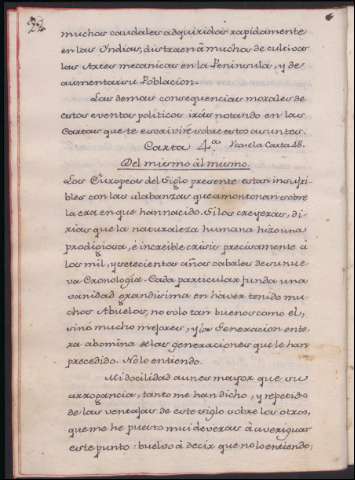 muchos caudales adquiridos rapidamente
en las Indias, distraen á muchos de cultivar
las Artes mecanicas en la Peninsula, y de
aumentar su Poblacion.
Las demas consequencias morales de
estos eventos politicos irás notando en las
Cartas que te escriviré sobre estos asuntos.
Carta 4.a
Del mismo al mismo.
Los Europeos del Siglo presente estan insufri-
bles con las alabanzas que amontonan sobre
la era en que han nacido. Si los creyeras, di-
rias que la naturaleza humana hizo una
prodigiosa, é increible crisis precisamente á
los mil, y setecientos años cabales de su nue-
va Cronologia. Cada particular funda una
vanidad grandisima en haver tenido mu-
chos Abuelos, no solo tan buenos como el,
sino mucho mejores, y la Generacion ente-
ra abomina de las generaciones que le han
precedido. No lo entiendo.
Mi docilidad aun es mayor que su
arrogancia, tanto me han dicho, y repetido
de las ventajas de este siglo sobre los otros,
que me he puesto mui deveras á averiguar
este punto: buelvo á decir que no lo entiendo;